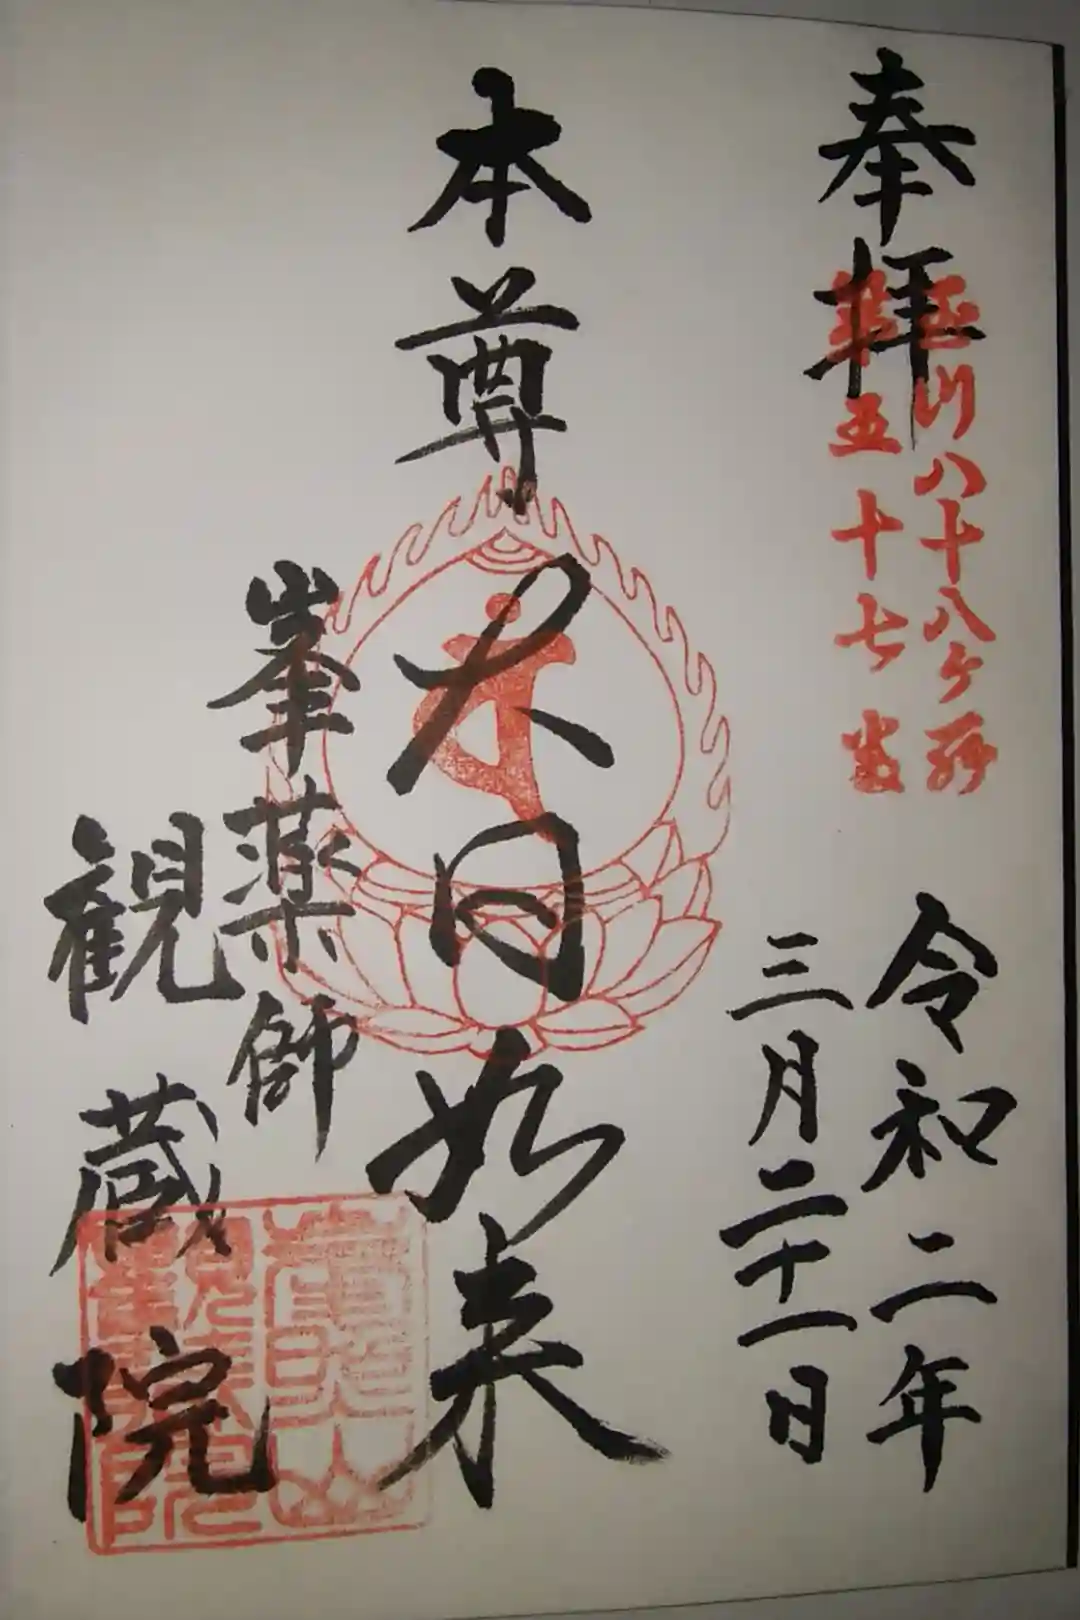 奉拝
玉川八十八ヶ所
第五十七番
令和二年
三月二十一日
本尊大日如来
峯薬師
観蔵院
観蔵院